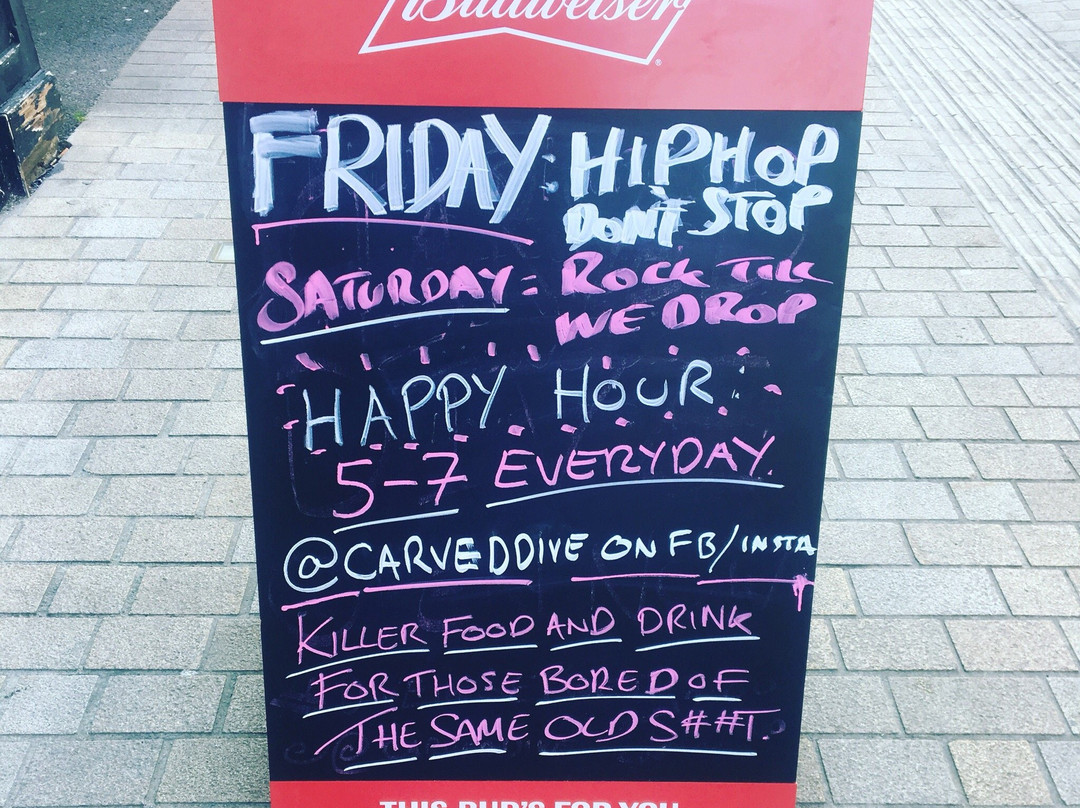 Budweiser
FRIDAY: HIPHOP
DON'T STOP
SATURDAY: ROCK TILL
WE DROP
HAPPY HOUR:
5-7 EVERYDAY.
@CARVEDDIVE ON FB/INSTA
KILLER FOOD AND DRINK
FOR THOSE BORED OF
THE SAME OLD S##T.
THIS BUD'S FOR YOU